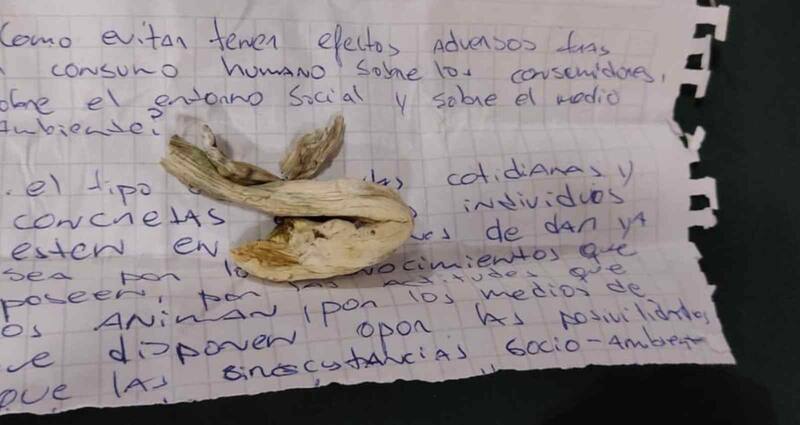 como evitar tener efectos adversos tras
consumo humano sobre los consumidores,
obre el entorno social y sobre el medio
Ambiente?
. el tipo cotidianas y
concretas individuos
esten en de dar ya
sea por lo nocimientos que
poseen, por las actitudes que
os ANIMAN, por los medios de
ue disponen o por las posivilidades
que las sinscustancias socio-Ambien